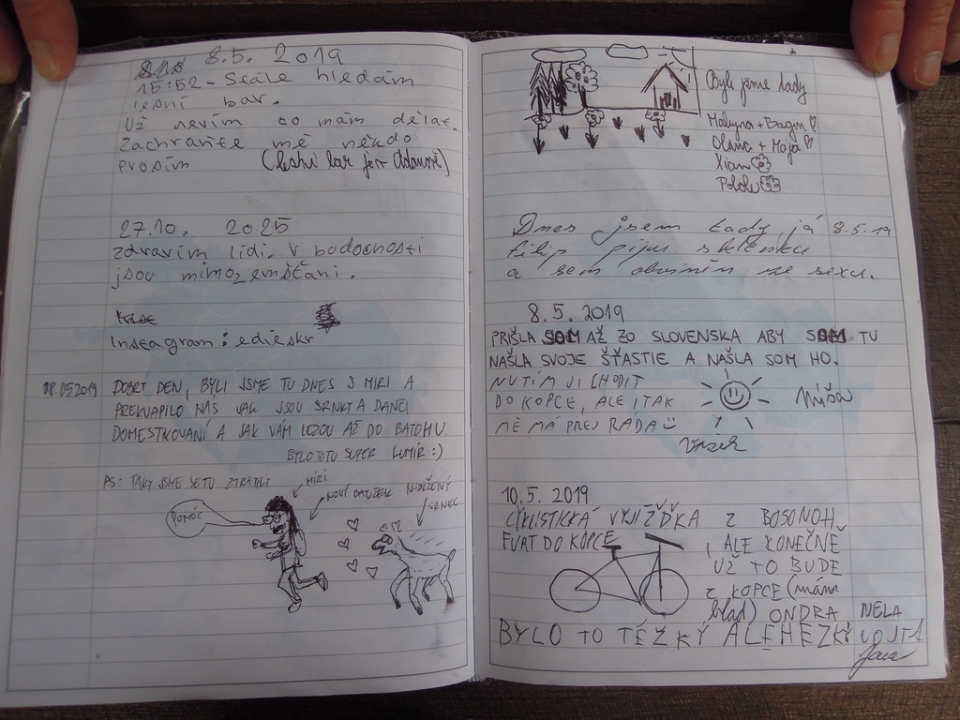 8.5. 2019
15:52 - Stále hledám
lesní bar.
Už nevím co mám dělat.
Zachrante mě někdo
prosím (lesní bar je
27.10. 2025
zdravím lidi. V budocnosti
jsou mimozemšťani.
Instagram: edieskr
08.05.2019 DOBRÝ DEN, BYLI JSME TU DNES S MIRI A
PŘEKVAPILO NÁS JAK JSOU SRNKY A DANCI
DOMESTIKOVANÍ A JAK VÁM LEZOU AŽ DO BATOHU.
BYLO TO TU SUPER LUMÍR :)
PS: TAKY JSME SE TU ZTRATILI
MIRI
NOVÝ BATŮŽEK
NADRŽENÝ
SRNEC
POMÓC
Byli jsme tady
Olina + Maja
Xian
Dnes jsem tady já 8.5.19
filip piju sklenku
a sem
8.5. 2019
PRIŠLA SOM AŽ ZO SLOVENSKA ABY SOM TU
NAŠLA SVOJE ŠŤASTIE A NAŠLA SOM HO.
NUTÍM JI CHODIT
DO KOPCE, ALE I TAK
MĚ MÁ PREJ RÁDA
Míša
Vašek
10.5. 2019
CYKLISTICKÁ VYJÍŽĎKA Z BOSONOH
FURT DO KOPCE, ALE KONEČNĚ
UŽ TO BUDE
Z KOPCE (mám
hlad) ONDRA NELA
BYLO TO TĚŽKÝ ALE HEZKÝ VOJTA